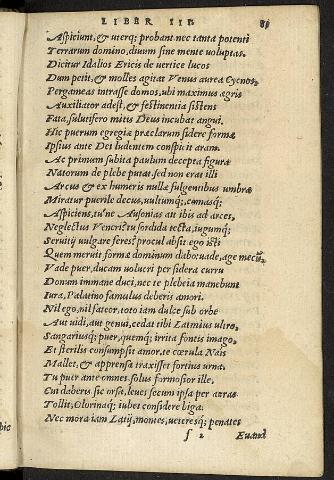 LIBER III. 81
Aspiciunt, & uterq; probant nec tanta potenti
Terrarum domino, diuum sine mente uoluptas.
Dicitur Idalios Ericis de uertice lucos
Dum petit, & molles agitat Venus aurea Cycnos,
Pergameas intrasse domos, ubi maximus ægris
Auxiliator adest, & festinentia sistens
Fata, salutifero mitis Deus incubat angui.
Hic puerum egregiæ præclarum sidere formæ
Ipsius ante Dei ludentem conspicit aram.
Ac primum subita paulum decepta figura
Natorum de plebe putat, sed non erat illi
Arcus & ex humeris nullæ fulgentibus umbræ
Miratur puerile decus, uultumq;, comasq;
Aspiciens, tu'ne Ausonias ait ibis ad arces,
Neglectus Veneri? tu sordida tecta, iugumq;
Seruitij uulgare feres? procul absit. ego isti
Quem meruit formæ dominum dabo: uade, age mecũ
Vade puer, ducam uolucri per sidera curru
Donum immane duci, nec te plebeia manebunt
Iura, Palatino famulus deberis amori.
Nil ego, nil fateor, toto iam dulce sub orbe
Aut uidi, aut genui, cedat tibi Latmius ultro,
Sangariusq; puer, quemq; irrita fontis imago,
Et sterilis consumpsit amor, te cœrula Nais
Mallet, & apprensa traxisset fortius urna.
Tu puer ante omnes, solus formosior ille,
Cui daberis sic orsa, leues secum ipsa per auras
Tollit, Olorinaq; iubet considere biga.
Nec mora iam Latij, montes, ueteresq; penates
f 2 Euand